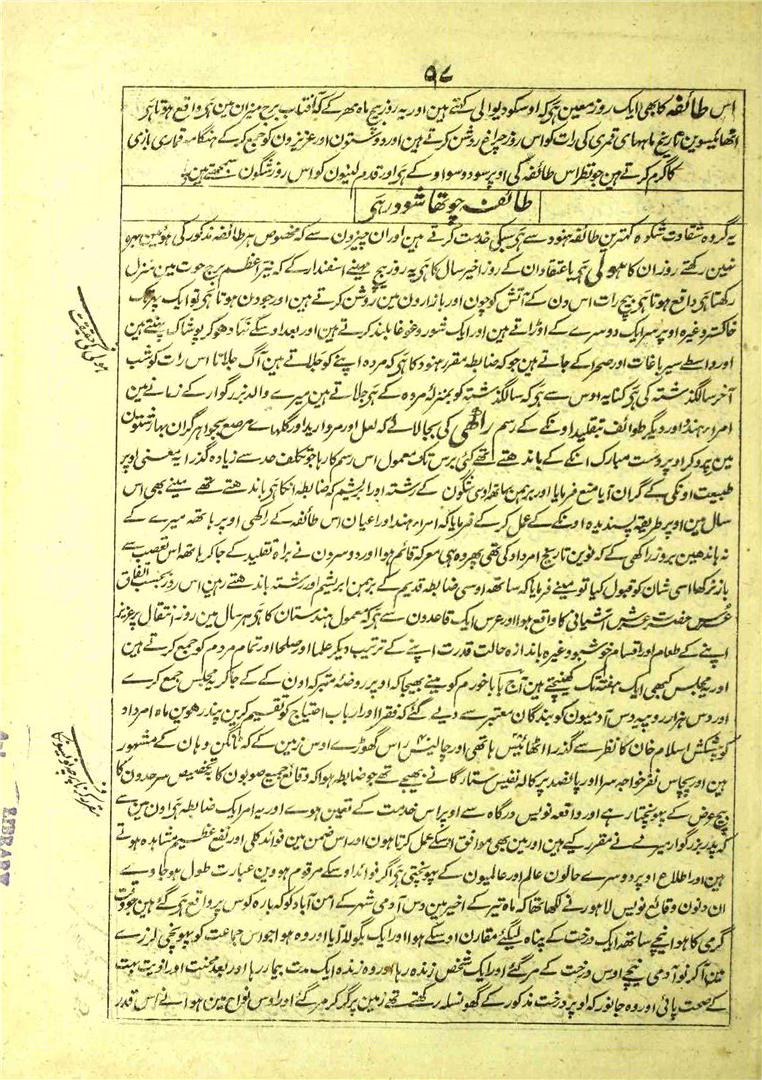 ۹۸
اس طائفہ کا بھی ایک روز معین ہی کہ اوسکو دیوالی کہتے ہین اور یہ روز بیچ ماہ مہر کے کہ آفتاب برج میزان مین ہی واقع ہوتا ہی
اٹھائیسوین تاریخ ماہہای قمری کی رات کو اس روز چراغ روشن کرتے ہین اور دوستون اور عزیزون کو جمع کرکے ہنگامہ قماربازی
کا گرم کرتے ہین جو نظر اس طائفہ کی اوپر سود و سوا کے ہی اور قدم لینون کو اس روز شگون سمجھتے ہین
طائفہ چوتھا شودر ہی
یہ گروہ شقاوت شکوہ کہترین طائفہ ہنود سے ہی سبکی خدمت کرتے ہین اور ان چیزون سے کہ مخصوص ہر طائفہ مذکور کی ہوئین بہرہ
نہین رکھتے روز ان کا ہولی ہی باعتقاد ان کے روز اخیر سال کا ہی یہ روز بیچ مہینے اسفندار کے کہ نیر اعظم برج حوت مین منزل
رکھتا ہی واقع ہوتا ہی بیچ رات اس دن کے آتش کوچون اور بازارون مین روشن کرتے ہین اور جو دن ہوتا ہی تو ایک پہر تک
خاکستر وغیرہ اوپر سر ایک دوسرے کے اوڑاتے ہین اور ایک شور و غوغا بلند کرتے ہین اور بعد اوسکے نہا دھو کر پوشاک پہنتے ہین
اور واسطے سیر باغات اور صحرا کے جاتے ہین جو کہ ضابطہ مقرر ہنود کا ہی کہ مردہ اپنے کو جلاتے ہین آگ جلانا اس رات کو شب
آخر سال گذشتہ کی ہی کنایہ اوس سے ہی کہ سال گذشتہ کو بمنزلہ مردہ کے ہی جلاتے ہین میرے والد بزرگوار کے زمانے مین
امراء ہند اور دیگر طوائف بتقلید اونکے کے رسم راکھی کی بجا لاتے کہ لعل اور مروارید اور گلہائے مرصع بجواہر گران بہا رشتون
مین پرو کر اوپر دست مبارک انکے کے باندھتے تھے کئی برس تک معمول اس رسم کا رہا جو تکلف حد سے زیادہ گذرا یہ معنی اوپر
طبیعت اونکی کے گران آیا منع فرمایا اور برہمن ساتھ اوسی شگون کے رشتہ اور ابریشم کہ ضابطہ انکا ہی باندھتے تھے مینے بھی اس
سال مین اوپر طریقہ پسندیدہ اونکے کے عمل کرکے فرمایا کہ امراء ہند اور اعیان اس طائفہ کے راکھی اوپر ہاتھ میرے کے
نہ باندھین بروز راکھی کے کہ نوین تاریخ امرداد کی تھی پھر وہی معرکہ قائم ہوا اور دوسرون نے براہ تقلید کے جاکر ہاتھ اس تعصب سے
باز نرکھا اسی شان کو قبول کیا تو مینے فرمایا کہ ساتھ اوسی ضابطہ قدیم کے برہمن ابریشم اور رشتہ باندھتے رہین اس روز بحسب اتفاق
عرس حضرت عرش آشیانی کا واقع ہوا اور عرس ایک قاعدون سے ہی کہ معمول ہندستان کا ہی ہر سال مین روز انتقال پر عزیز
اپنے کے طعام اور اقسام خوشبو وغیرہ باندازہ حالت قدرت اپنے کے ترتیب دیکر علما اور صلحا اور تمام مردم کو جمع کرتے ہین
اور مجلس کبھی ایک ہفتہ تک کھینچتے ہین آج بابا خورم کو مینے بھیجا کہ اوپر روضہ متبرکہ اون کے کے جا کر مجلس جمع کرے
اور دس ہزار روپیہ دس آدمیون کو بندگان معتبر سے دیے گئے کہ فقرا اور ارباب احتیاج کو تقسیم کرین پندرھوین ماہ امرداد
کو پیشکش اسلام خان کا نظر سے گذرا اٹھائیس ہاتھی اور چالیس راس گھوڑے اوس زمین کے کہ ٹانگن وہان کے مشہور
ہین اور پچاس نفر خواجہ سرا اور پانصد پرکالہ نفیس ستارگانے بھیجے تھے جو ضابطہ ہوا کہ وقائع جمیع صوبون کا بتخصیص سرحدون کا
بیچ عرض کے پہونچتا رہے اور واقعہ نویس درگاہ سے اوپر اس خدمت کے تعین ہوے اور یہ امر ایک ضابطہ ہی اون مین سے
کہ پدر بزرگوار میرے نے مقرر کیے ہین اور مین بھی موافق اوسکے عمل کرتا ہون اور اس ضمن مین فوائد کلی اور نفع عظیم مشاہدہ ہوتے
ہین اور اطلاع اوپر دوسرے حالون عالم اور عالمیون کے پہونچتی ہی اگر فوائد اوسکے مرقوم ہووین عبارت طول ہو جاوے
ان دنون وقائع نویس لاہور نے لکھا تھا کہ ماہ تیر کے اخیر مین دس آدمی شہر کے امن آباد کو کہ بارہ کوس پر واقع ہی گئے ہین جو وقت
گرمی کا ہوا نیچے سایہ ایک درخت کے پناہ لیگئے مقارن اوسکے ہوا اور ایک بگولا آیا اور وہ ہوا جو اس جماعت کو پہونچی لرزے
مین آکر نو آدمی نیچے اوس درخت کے مر گئے اور ایک شخص زندہ رہا اور وہ زندہ ایک مدت بیمار رہا اور بعد محنت اور اذیت بہت
کے صحت پائی اور وہ جانور کہ اوپر درخت مذکور کے گھونسلہ رکھتے تھے زمین پر گر کر مر گئے اور اوس نواح مین ہوا نے اس قدر
ہولی کی حقیقت
LIBRARY